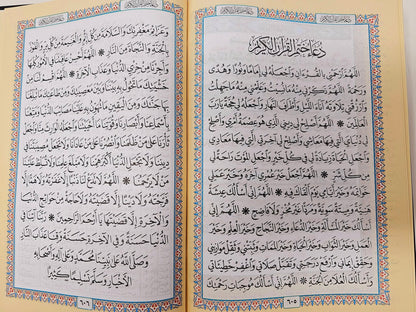 دعاء ختم القرآن الكريم
دُعَاءُ خَتْمِ الْقُرْآنِ الْكَرِيمِ
اللَّهُمَّ ارْحَمْنِي بِالْقُرْءَانِ وَاجْعَلْهُ لِي إِمَامًا وَنُورًا وَهُدًى
وَرَحْمَةً اللَّهُمَّ ذَكِّرْنِي مِنْهُ مَانَسِيتُ وَعَلِّمْنِي مِنْهُ مَاجَهِلْتُ
وَارْزُقْنِي تِلَاوَتَهُ آنَاءَ اللَّيْلِ وَأَطْرَافَ النَّهَارِ وَاجْعَلْهُ لِي حُجَّةً يَارَبَّ
الْعَالَمِينَ * اللَّهُمَّ أَصْلِحْ لِي دِينِي الَّذِي هُوَ عِصْمَةُ أَمْرِي وَأَصْلِحْ
لِي دُنْيَايَ الَّتِي فِيهَا مَعَاشِي وَأَصْلِحْ لِي آخِرَتِي الَّتِي فِيهَا مَعَادِي
وَاجْعَلِ الْحَيَاةَ زِيَادَةً لِي فِي كُلِّ خَيْرٍ وَاجْعَلِ الْمَوْتَ رَاحَةً لِي
مِنْ كُلِّ شَرٍّ * اللَّهُمَّ اجْعَلْ خَيْرَ عُمْرِي آخِرَهُ وَخَيْرَ عَمَلِي
خَوَاتِمَهُ وَخَيْرَ أَيَّامِي يَوْمَ أَلْقَاكَ فِيهِ * اللَّهُمَّ إِنِّي أَسْأَلُكَ عِيشَةً
هَنِيَّةً وَمِيتَةً سَوِيَّةً وَمَرَدًّا غَيْرَ مُخْزٍ وَلَا فَاضِحٍ * اللَّهُمَّ إِنِّي
أَسْأَلُكَ خَيْرَ الْمَسْأَلَةِ وَخَيْرَ الدُّعَاءِ وَخَيْرَ النَّجَاحِ وَخَيْرَ الْعِلْمِ وَخَيْرَ
الْعَمَلِ وَخَيْرَ الثَّوَابِ وَخَيْرَ الْحَيَاةِ وَخَيْرَ الْمَمَاتِ وَثَبِّتْنِي وَثَقِّلْ مَوَازِينِي
وَحَقِّقْ إِيمَانِي وَارْفَعْ دَرَجَتِي وَتَقَبَّلْ صَلَاتِي وَاغْفِرْ خَطِيئَاتِي
وَأَسْأَلُكَ الْعُلَا مِنَ الْجَنَّةِ * اللَّهُمَّ إِنِّي أَسْأَلُكَ مُوجِبَاتِ رَحْمَتِكَ
٦٠٥
دعاء ختم القرآن الكريم
وَعَزَائِمَ مَغْفِرَتِكَ وَالسَّلَامَةَ مِنْ كُلِّ إِثْمٍ وَالْغَنِيمَةَ مِنْ كُلِّ بِرٍّ وَالْفَوْزَ
بِالْجَنَّةِ وَالنَّجَاةَ مِنَ النَّارِ * اللَّهُمَّ أَحْسِنْ عَاقِبَتَنَا فِي الْأُمُورِ كُلِّهَا
وَأَجِرْنَا مِنْ خِزْيِ الدُّنْيَا وَعَذَابِ الْآخِرَةِ * اللَّهُمَّ اقْسِمْ لَنَا مِنْ
خَشْيَتِكَ مَاتَحُولُ بِهِ بَيْنَنَا وَبَيْنَ مَعْصِيَتِكَ وَمِنْ طَاعَتِكَ مَاتُبَلِّغُنَا
بِهَا جَنَّتَكَ وَمِنَ الْيَقِينِ مَاتُهَوِّنُ بِهِ عَلَيْنَا مَصَائِبَ الدُّنْيَا وَمَتِّعْنَا
بِأَسْمَاعِنَا وَأَبْصَارِنَا وَقُوَّتِنَا مَا أَحْيَيْتَنَا وَاجْعَلْهُ الْوَارِثَ مِنَّا
وَاجْعَلْ ثَأْرَنَا عَلَى مَنْ ظَلَمَنَا وَانْصُرْنَا عَلَى مَنْ عَادَانَا وَلَا تَجْعَلْ مُصِيبَتَنَا فِي
دِينِنَا وَلَا تَجْعَلِ الدُّنْيَا أَكْبَرَ هَمِّنَا وَلَا مَبْلَغَ عِلْمِنَا وَلَا تُسَلِّطْ عَلَيْنَا
مَنْ لَا يَرْحَمُنَا * اللَّهُمَّ لَا تَدَعْ لَنَا ذَنْبًا إِلَّا غَفَرْتَهُ وَلَا هَمًّا إِلَّا
فَرَّجْتَهُ وَلَا دَيْنًا إِلَّا قَضَيْتَهُ وَلَا حَاجَةً مِنْ حَوَائِجِ الدُّنْيَا
وَالْآخِرَةِ إِلَّا قَضَيْتَهَا يَا أَرْحَمَ الرَّاحِمِينَ * رَبَّنَا آتِنَا فِي
الدُّنْيَا حَسَنَةً وَفِي الْآخِرَةِ حَسَنَةً وَقِنَا عَذَابَ النَّارِ
وَصَلَّى اللَّهُ عَلَى نَبِيِّنَا مُحَمَّدٍ وَعَلَى آلِهِ وَأَصْحَابِهِ
الْأَخْيَارِ وَسَلَّمَ تَسْلِيمًا كَثِيرًا
٦٠٦